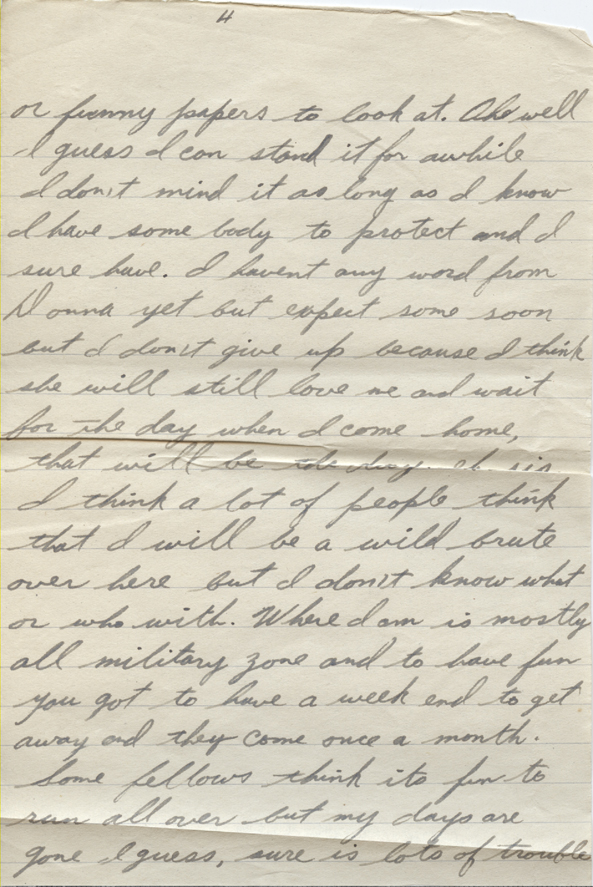 4
or funny papers to look at. Ahe well
I guess I can stand it for awhile
I don't mind it as long as I know
I have some body to protect and I
sure have. I havent any word from
Donna yet but expect some soon
but I don't give up because I think
she will still love me and wait
for the day when I come home,
that will be the day. eh sis
I think a lot of people think
that I will be a wild brute
over here but I don't know what
or who with. Where I am is mostly
all military zone and to have fun
you got to have a week end to get
away and they come once a month.
Some fellows think its fun to
run all over but my days are
gone I guess, sure is lots of trouble